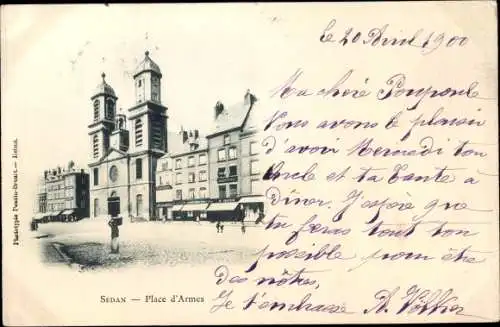 le 20 Avril 1900
Ma chère Pouponle
Nous avons le plaisir
d'avoir Mercredi ton
oncle et ta tante à
dîner. J'espère que
tu feras tout ton
possible pour être
des nôtres,
Je t'embrasse
Phototypie
SEDAN — Place d'Armes